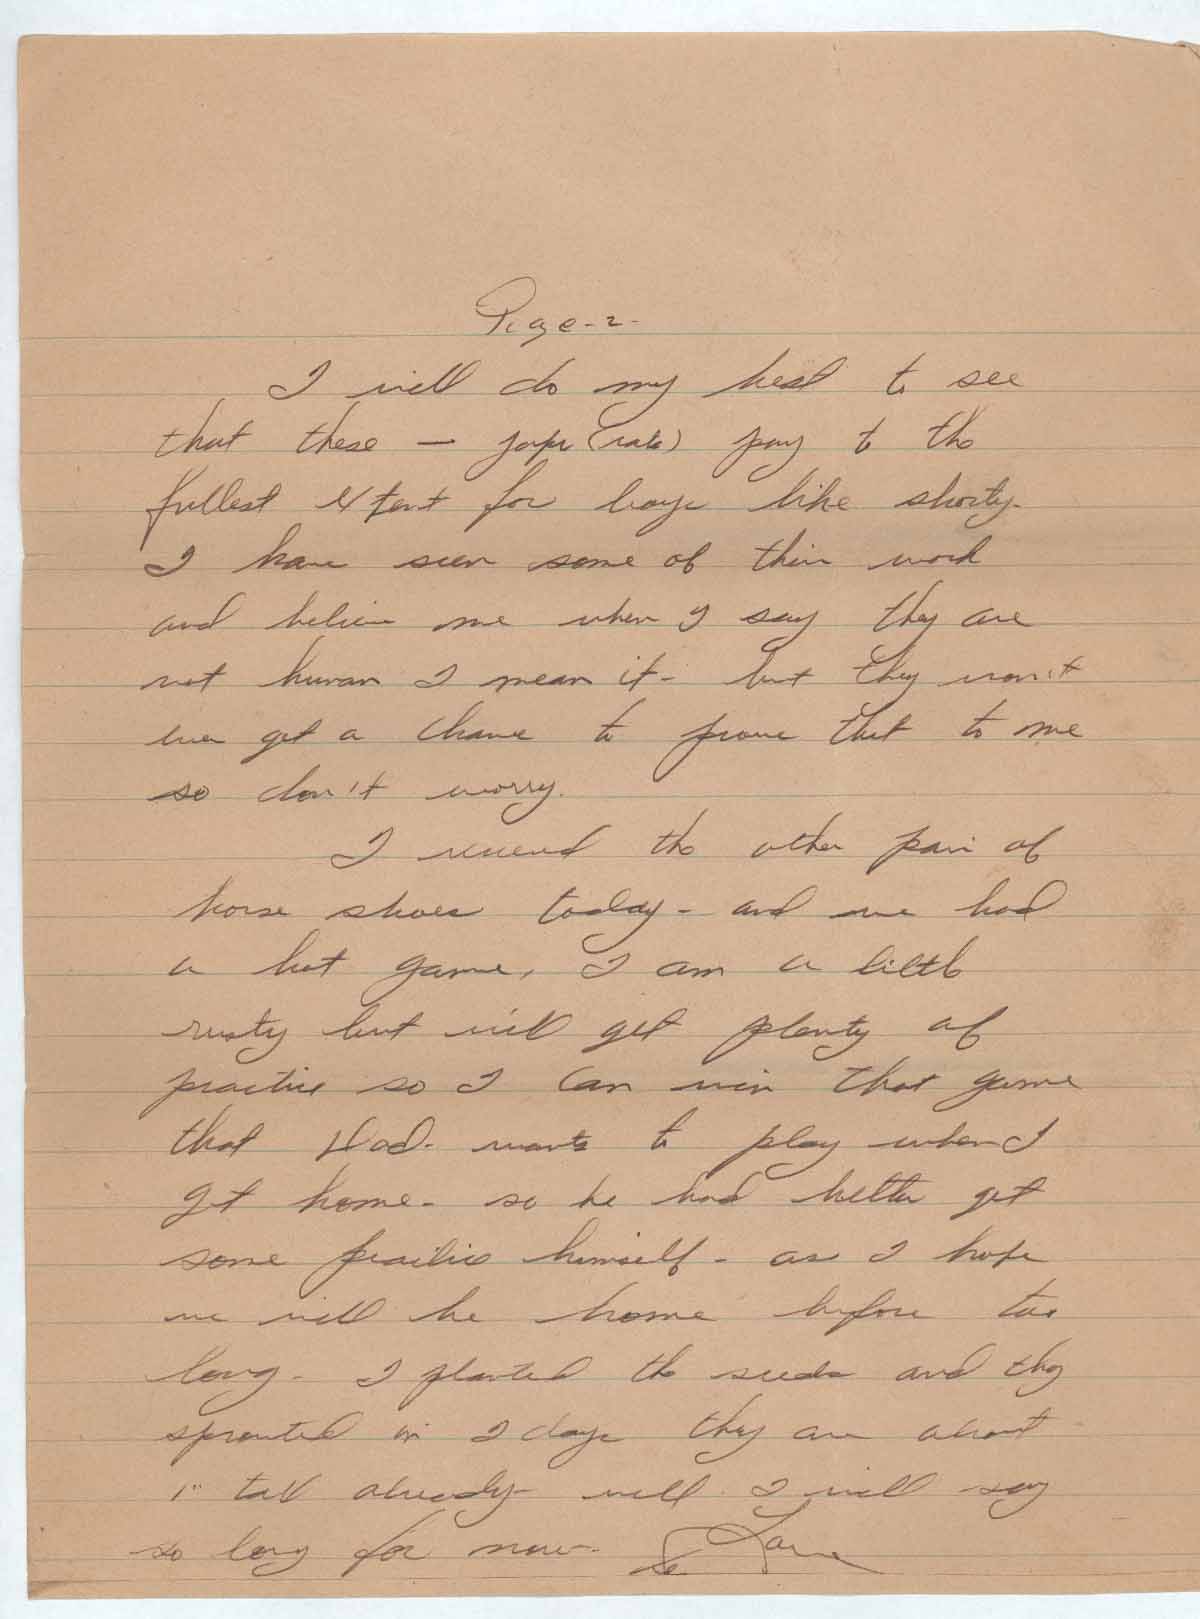 Page-2-
I will do my best to see
that these — japs (rats) pay to the
fullest extent for boys like shorty-
I have seen some of thier work
and believe me when I say they are
not human I mean it- but they won't
ever get a chance to prove that to me
so don't worry.
I received the other pair of
horse shoes today- and we had
a hot game, I am a little
rusty but will get plenty of
practice so I can win that game
that Dad- wants to play when I
get home- so he had better get
some practice himself- as I hope
we will be home before too
long- I planted the seeds and they
sprouted in 2 days they are about
1" tall already- well I will say
so long for now-